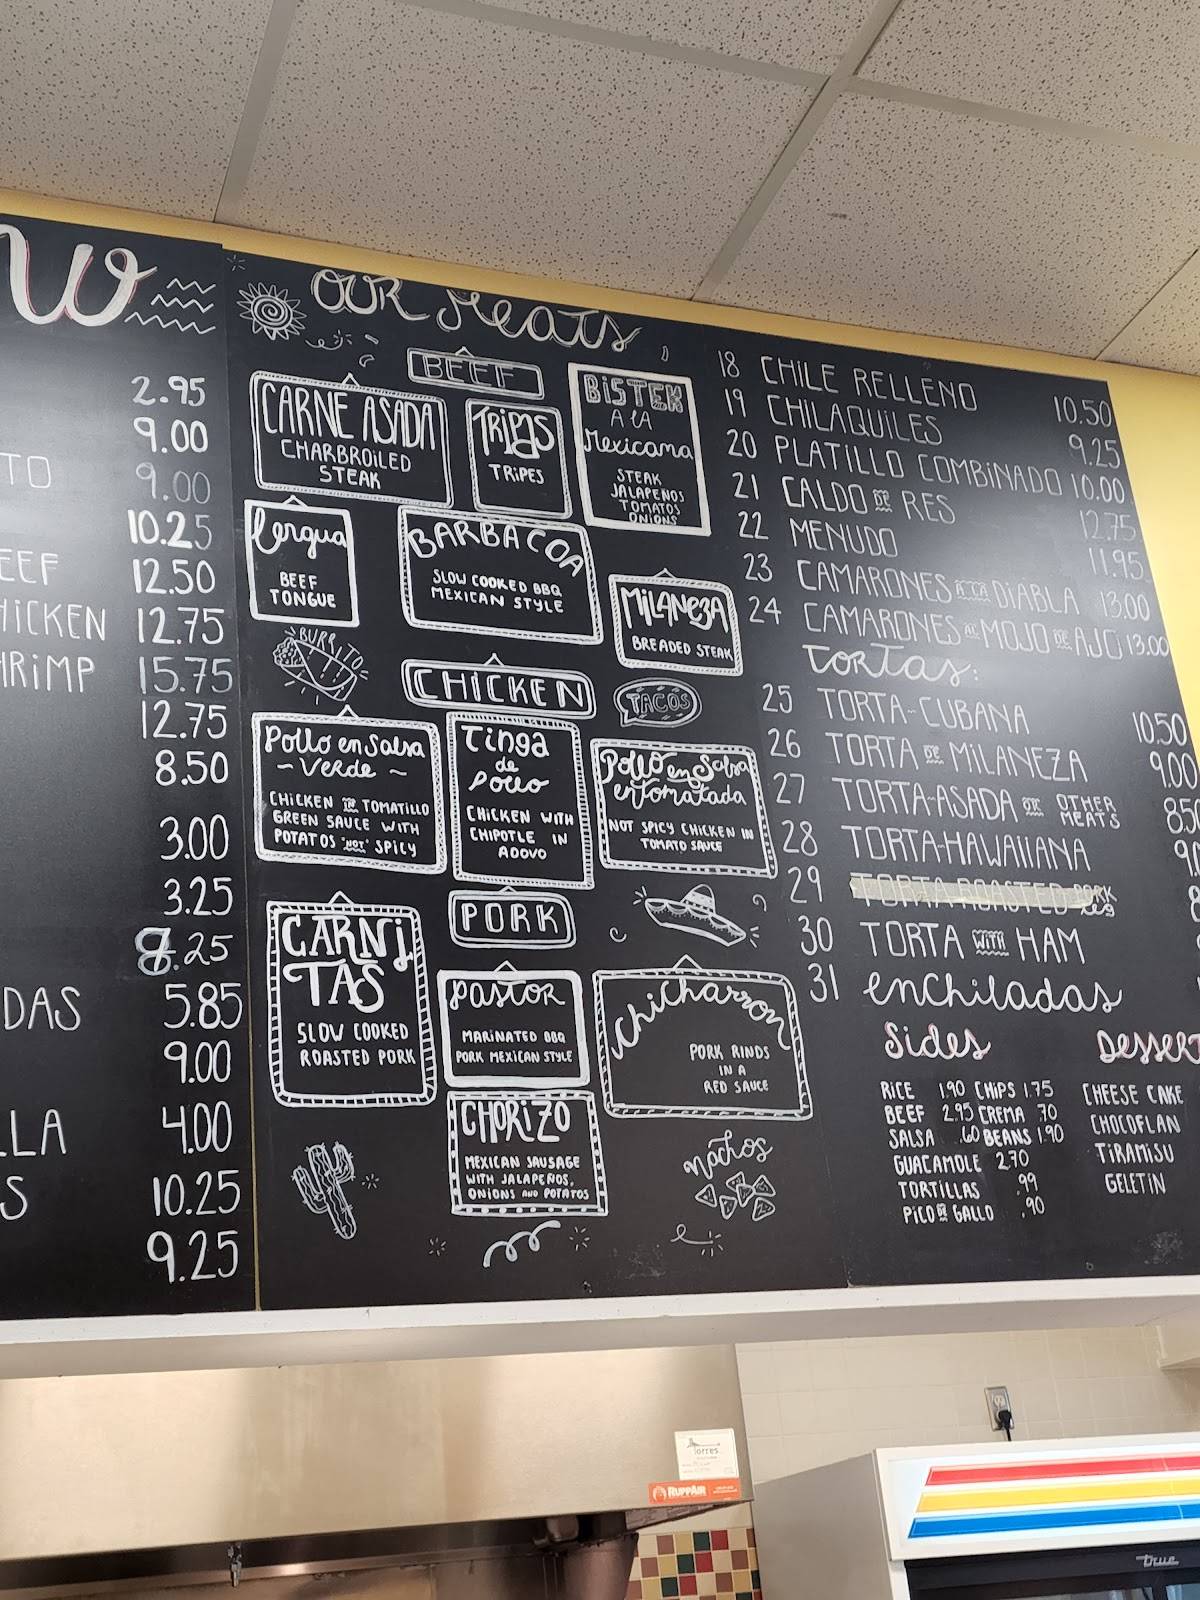 W
2.95
9.00
TO 9.00
10.25
EEF 12.50
HICKEN 12.75
HRIMP 15.75
12.75
8.50
3.00
3.25
8.25
DAS 5.85
9.00
LLA 4.00
S 10.25
9.25
OUR Meats
BEEF
CARNE ASADA
CHARBROILED
STEAK
TRIPAS
TRIPES
BISTEK
A LA
Mexicana
STEAK
JALAPEÑOS
TOMATOS
ONIONS
Lengua
BEEF
TONGUE
BARBACOA
SLOW COOKED BBQ
MEXICAN STYLE
MILANEZA
BREADED STEAK
BURRITO
CHICKEN
TACOS
Pollo en Salsa
~ Verde ~
CHICKEN IN TOMATILLO
GREEN SAUCE WITH
POTATOS "NOT" SPICY
Tinga
de
Pollo
CHICKEN WITH
CHIPOTLE IN
ADOVO
Pollo en Salsa
entomatada
NOT SPICY CHICKEN IN
TOMATO SAUCE
PORK
CARNI
TAS
SLOW COOKED
ROASTED PORK
Pastor
MARINATED BBQ
PORK MEXICAN STYLE
Chicharron
PORK RINDS
IN A
RED SAUCE
CHORIZO
MEXICAN SAUSAGE
WITH JALAPEÑOS,
ONIONS AND POTATOS
nachos
18 CHILE RELLENO 10.50
19 CHILAQUILES 9.25
20 PLATILLO COMBINADO 10.00
21 CALDO DE RES 12.75
22 MENUDO 11.95
23 CAMARONES A LA DIABLA 13.00
24 CAMARONES AL MOJO DE AJO 13.00
TORTAS:
25 TORTA-CUBANA 10.50
26 TORTA DE MILANEZA 9.00
27 TORTA-ASADA OR OTHER MEATS 8.50
28 TORTA-HAWAIIANA 9.0
29 TORTA ROASTED PORK leg 8
30 TORTA WITH HAM
31 enchiladas
Sides
RICE 1.90 CHIPS 1.75
BEEF 2.95 CREMA .70
SALSA .60 BEANS 1.90
GUACAMOLE 2.70
TORTILLAS .99
PICO DE GALLO .90
Dessert
CHEESE CAKE
CHOCOFLAN
TIRAMISU
GELETIN
Torres
RUPPAIR
True